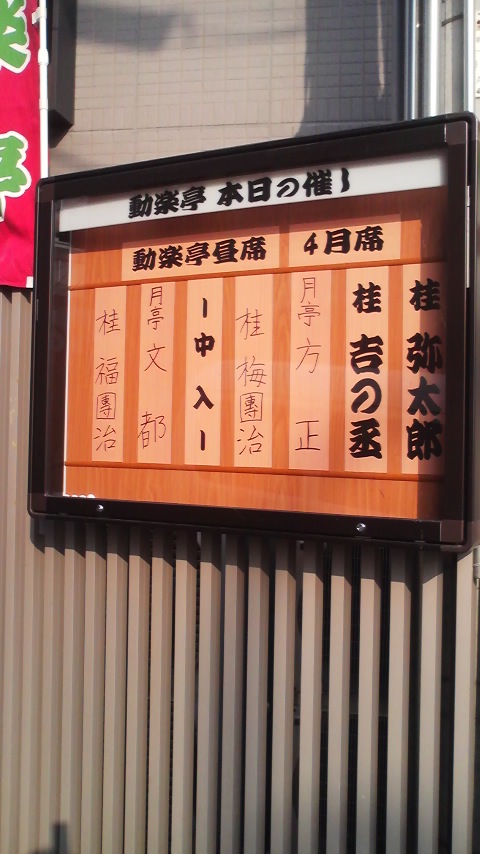 動楽亭 本日の催し
4月席
動楽亭昼席
桂 弥太郎
桂 吉の丞
月亭 方 正
桂 梅團治
ー中 入ー
月亭 文 都
桂 福團治
亭